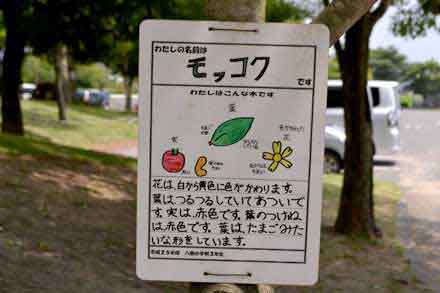 わたしの名前は
モッコク
です
わたしはこんな木です
葉
実
花
花は、白から黄色に色がかわります。
葉はつるつるしていてあついで
す。実は、赤色です。葉のつけね
は、赤色です。葉は、たまごみた
いな形をしています。